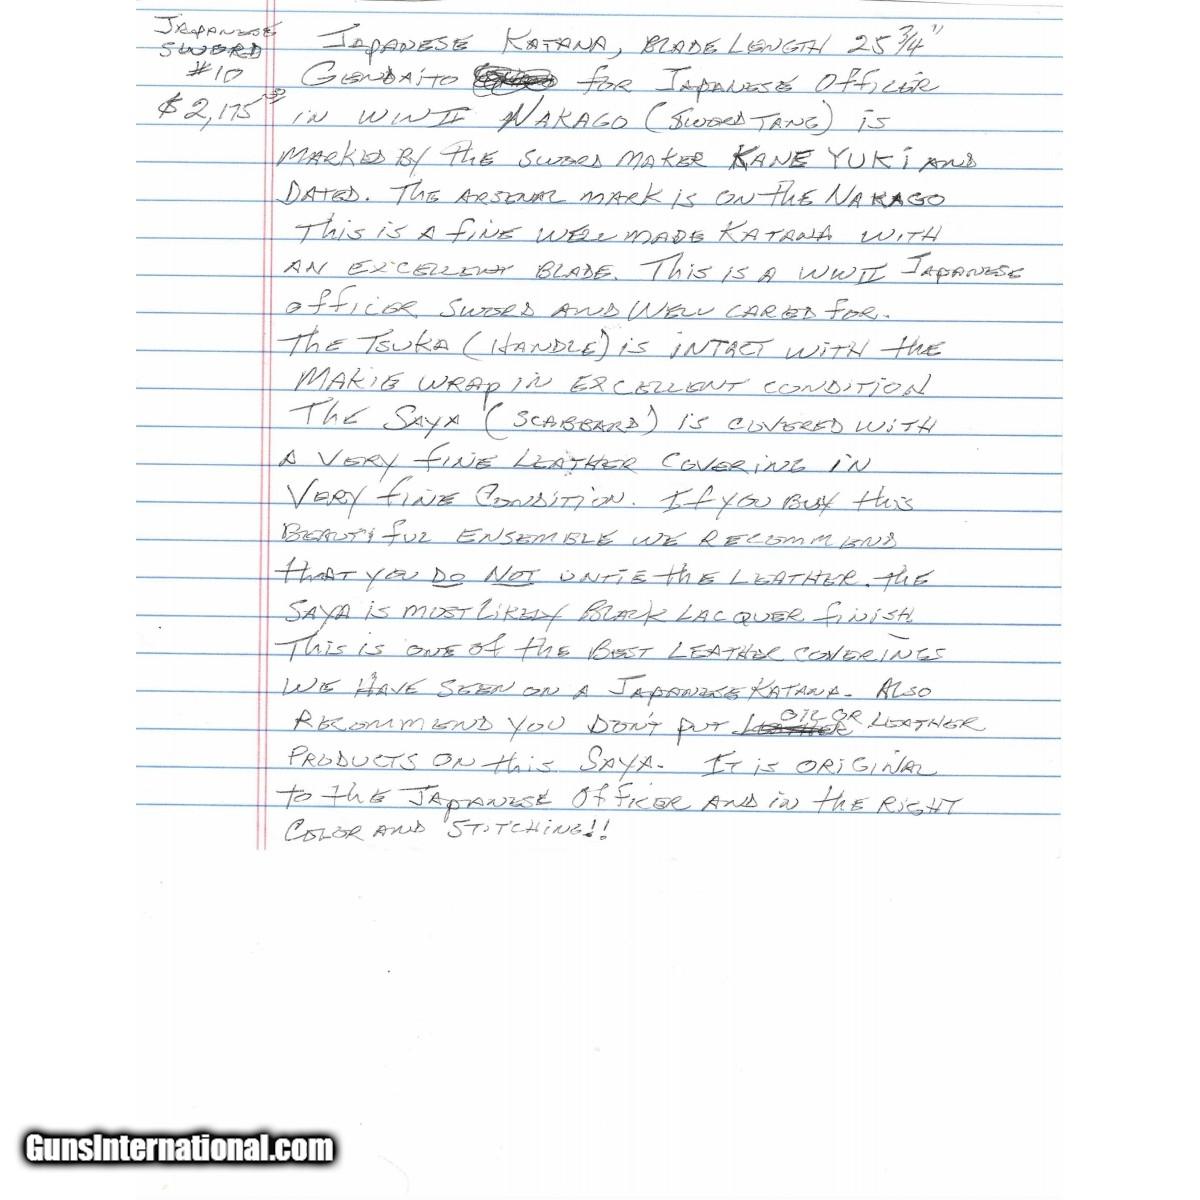 Japanese
Sword
#10
$2,175
Japanese Katana, Blade Length 25 3/4"
Gendaito for Japanese Officer
in WWII Nakago (Sword Tang) is
marked by the sword maker Kane Yuki and
Dated. The arsenal mark is on the Nakago
This is a fine well made Katana with
an excellent blade. This is a WWII Japanese
officer sword and well cared for.
The Tsuka (Handle) is intact with the
Makie wrap in excellent condition
The Saya (scabbard) is covered with
a very fine leather covering in
very fine condition. If you buy this
beautiful ensemble we recommend
that you DO NOT untie the leather. The
Saya is most likely Black lacquer finish.
This is one of the best leather coverings
we have seen on a Japanese Katana. Also
recommend you don't put oil or leather
products on this Saya. It is original
to the Japanese officer and in the right
color and stitching!!
GunsInternational.com